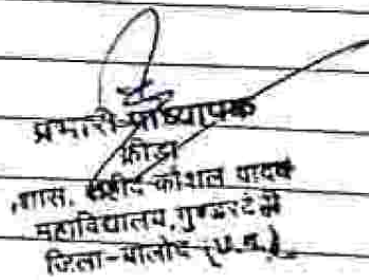 प्रभारी-प्राध्यापक
क्रीडा
शास. शहीद कौशल यादव
महाविद्यालय, गुण्डरदेही
जिला-बालोद (छ.ग.)